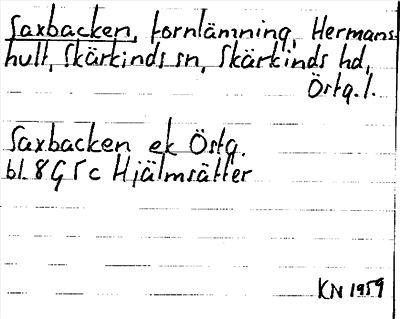 Saxbacken, fornlämning, Hermans-
hult, Skärkinds sn, Skärkinds hd,
Östg. l.
Saxbacken ek Östg.
bl. 8G 5c Hjälmsätter
KN 1959